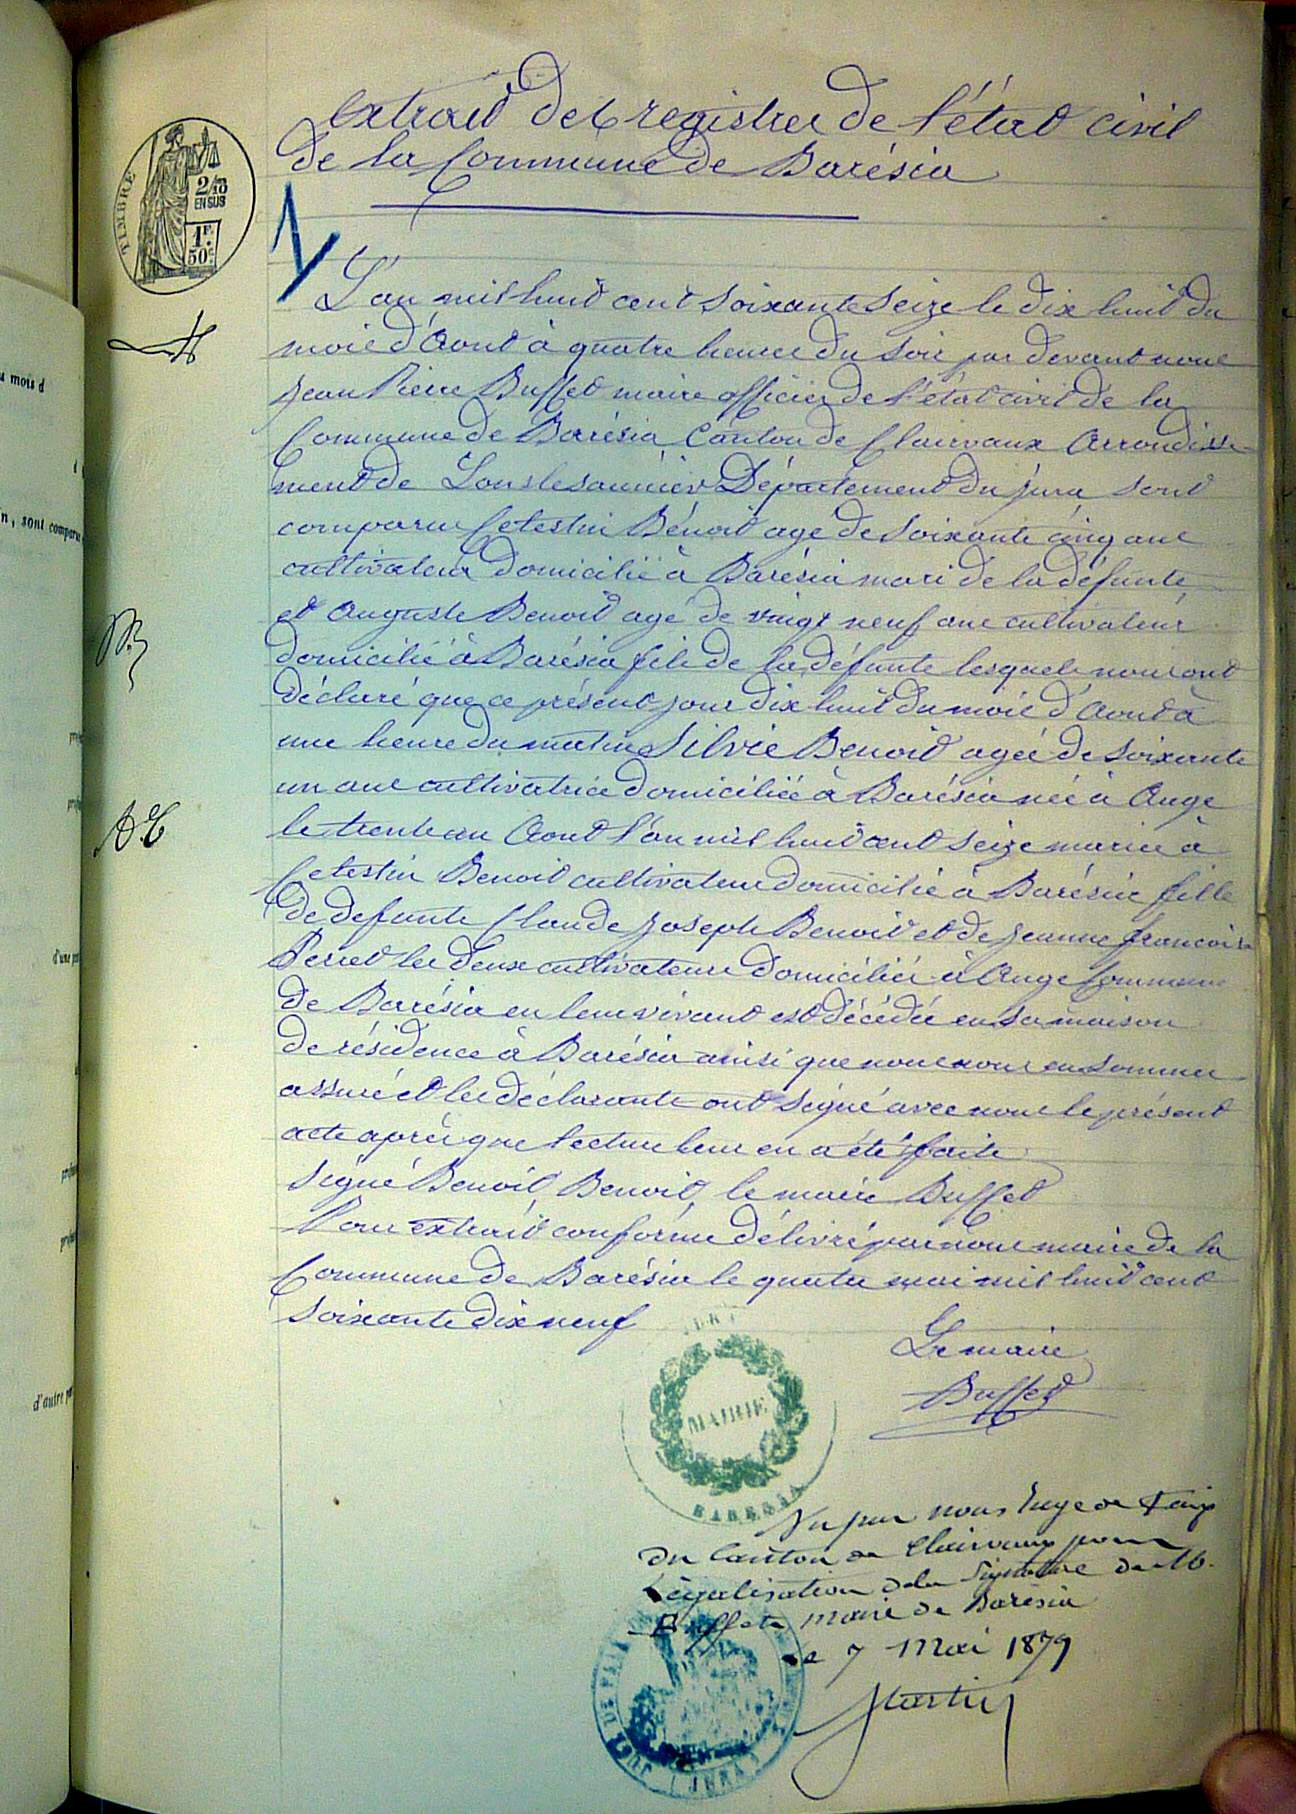 Extrait des registres de l'état civil
de la Commune de Barésia
TIMBRE
2/10
EN SUS
1F.
50c
L'an mil huit cent soixante seize le dix huit du
mois d'Aout à quatre heures du soir par devant nous
Jean Pierre Buffet maire officier de l'état civil de la
Commune de Barésia Canton de Clairvaux Arrondisse-
ment de Lons le saunier Département du jura sont
comparu Celestin Bénoit age de soixante cinq ans
cultivateur domicilié à Barésia mari de la défunte
et Auguste Benoit agé de vingt neuf ans cultivateur
domicilié à Barésia fils de la défunte lesquels nous ont
déclaré que ce présent jour dix huit du mois d'Aout à
une heure du matin Silvie Benoit agée de soixante
un ans cultivatrice domiciliée à Barésia née à Auge
le trente un Aout l'an mil huit cent seize mariée à
Celestin Benoit cultivateur domicilié à Barésia fille
de defunts Claude Joseph Benoit et de jeanne francoise
Perret les deux cultivateurs domiciliés à Auge Commune
de Barésia en leur vivant est décédée en sa maison
de résidence à Barésia ainsi que nous nous en sommes
assuré et les déclarants ont signé avec nous le présent
acte après que lecture leur en a été faite
signé Benoit, Benoit, le maire Buffet
Pour extrait conforme délivré par nous maire de la
Commune de Barésia le quatre mai mil huit cent
soixante dix neuf
Le maire
Buffet
MAIRIE
BARESIA
Vu par nous Juge de Paix
du Canton de Clairvaux pour
Légalisation de la Signature de M.
Buffet, maire de Barésia
Le 7 Mai 1879
u mois d
n, sont comparus
d'une pa
d'autre pa
(JURA)